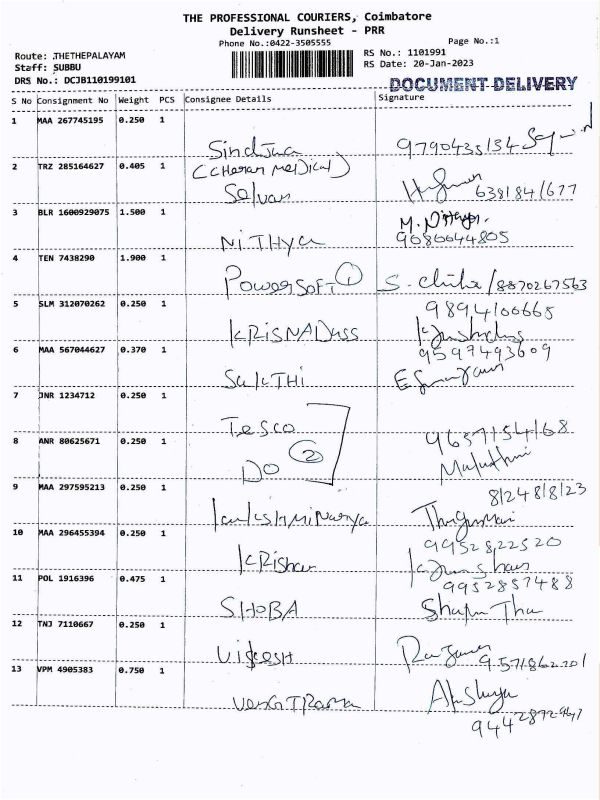 THE PROFESSIONAL COURIERS, Coimbatore
Delivery Runsheet - PRR
Phone No.:0422-3505555
Page No.:1
Route: THETHEPALAYAM
RS No.: 1101991
Staff: SUBBU
RS Date: 20-Jan-2023
DRS No.: DCJB110199101
DOCUMENT DELIVERY
S No Consignment No Weight PCS Consignee Details Signature
1 MAA 267745195 0.250 1
2 TRZ 285164627 0.405 1 (CHeran Medical)
Selvan
3 BLR 1600929075 1.500 1
NiTHYa 9080644805
4 TEN 7438290 1.900 1
PowerSoFT 1 S. / 8870267563
5 SLM 312070262 0.250 1 9894100665
KRiSNADass
6 MAA 567044627 0.370 1 9597493609
SakTHi
7 JNR 1234712 0.250 1
Tesco
8 ANR 80625671 0.250 1 9637154168
DO 2
9 MAA 297595213 0.250 1 8124818123
10 MAA 296455394 0.250 1 9952822520
KRishan
11 POL 1916396 0.475 1 9952857488
SHOBA
12 TNJ 7110667 0.250 1
VigNESH
13 VPM 4905383 0.750 1
VenGTRaman